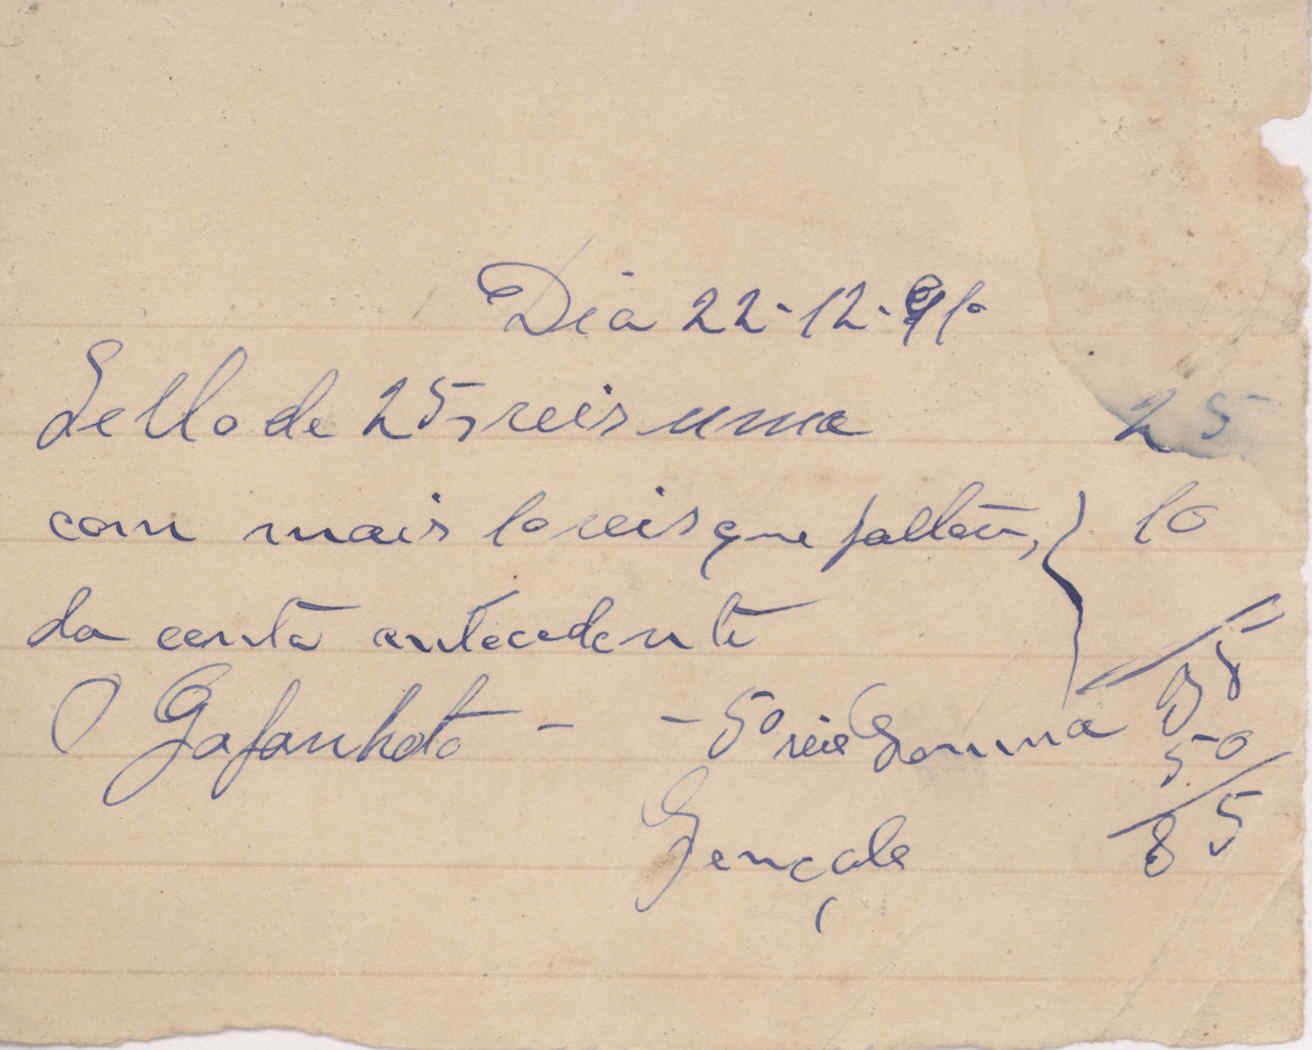 Dia 22-12-910
Sello de 25, reis uma 25
com mais 10 reis que faltão, 10
da conta antecedente
35
O Gafanhoto - - 50 reis Somma
50
85